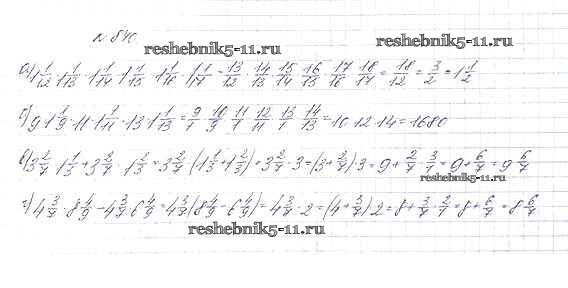 № 840.
reshebnik5-11.ru
reshebnik5-11.ru
а) 1 1/12 · 1 1/13 · 1 1/14 · 1 1/15 · 1 1/16 · 1 1/17 = 13/12 · 14/13 · 15/14 · 16/15 · 17/16 · 18/17 = 18/12 = 3/2 = 1 1/2
б) 9 · 1 1/9 · 11 · 1 1/11 · 13 · 1 1/13 = 9/1 · 10/9 · 11/1 · 12/11 · 13/1 · 14/13 = 10 · 12 · 14 = 1680
в) 3 2/7 · 1 1/3 + 3 2/7 · 1 2/3 = 3 2/7 · (1 1/3 + 1 2/3) = 3 2/7 · 3 = (3 + 2/7) · 3 = 9 + 2/7 · 3/1 = 9 + 6/7 = 9 6/7
reshebnik5-11.ru
г) 4 3/7 · 8 4/9 - 4 3/7 · 6 4/9 = 4 3/7 · (8 4/9 - 6 4/9) = 4 3/7 · 2 = (4 + 3/7) · 2 = 8 + 3/7 · 2/1 = 8 + 6/7 = 8 6/7
reshebnik5-11.ru